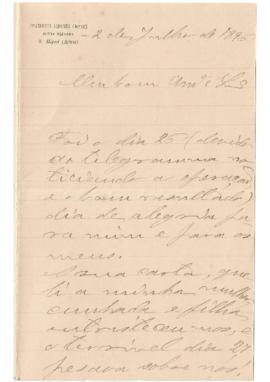 2 de Julho de 1895
Meu bom Amº e
Foi o dia 26 (devido
ao telegramma no
ticiando a operação
e o bom resultado)
dia de alegria pa
ra mim e para os
meus.
A sua carta, que
li a minha mulher
cunhada e filha
entristeceu-nos, e
o terrivel dia 27
pesava sobre nós!